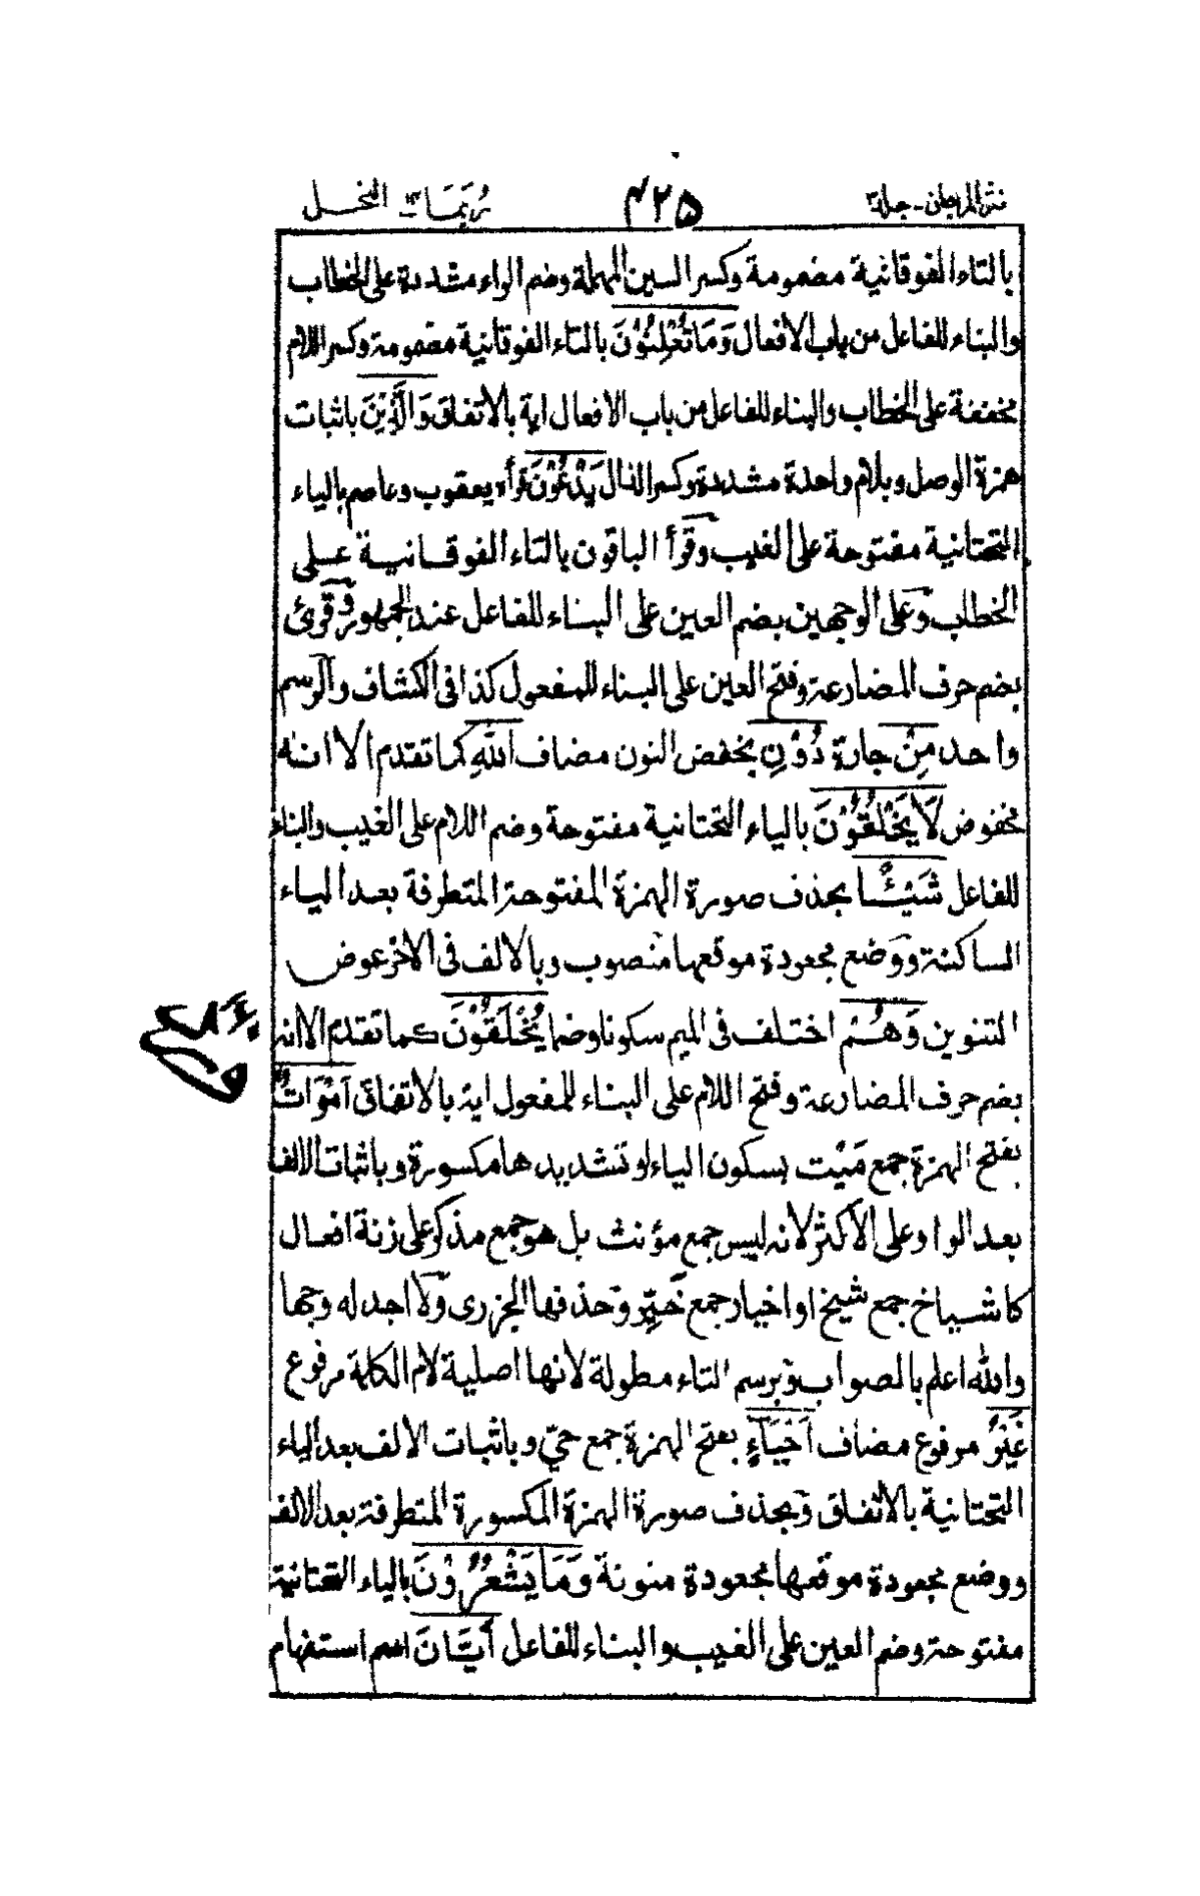 نثر المرجان - جلد ٣
٤٢٥
رُبَمَا ١٤ النحل
بالتاء الفوقانية مضمومة وكسر السين المهملة وضم الراء مشددة على الخطاب
والبناء للفاعل من باب الافعال وَمَا تُعْلِنُوْنَ بالتاء الفوقانية مضمومة وكسر اللام
مخففة على الخطاب والبناء للفاعل من باب الافعال اية بالاتفاق وَالَّذِيْنَ باثبات
همزة الوصل وبلام واحدة مشددة وكسر الذال يَدْعُوْنَ قرأه يعقوب وعاصم بالياء
التحتانية مفتوحة على الغيب وقرأ الباقون بالتاء الفوقانية على
الخطاب وعلى الوجهين بضم العين على البناء للفاعل عند الجمهور وقرئ
بضم حرف المضارعة وفتح العين على البناء للمفعول كذا فى الكشاف والرسم
واحد مِنْ جارة دُوْنِ بخفض النون مضاف اللهِ كما تقدم الا انه
مخفوض لَا يَخْلُقُوْنَ بالياء التحتانية مفتوحة وضم اللام على الغيب والبناء
للفاعل شَيْـًٔا بحذف صورة الهمزة المفتوحة المتطرفة بعد الياء
الساكنة ووضع مجعودة موقعها منصوب وبالالف فى الاخر عوض
التنوين وَهُمْ اختلف فى الميم سكونا وضما يُخْلَقُوْنَ كما تقدم الا انه
بضم حرف المضارعة وفتح اللام على البناء للمفعول اية بالاتفاق اَمْوَاتٌ
بفتح الهمزة جمع مَيْت بسكون الياء او تشديدها مكسورة وباثبات الالف
بعد الواو على الاكثر لانه ليس جمع مؤنث بل هو جمع مذكر على زنة افعال
كاشياخ جمع شيخ او اخيار جمع خَيِّر وحذفها الجزرى ولا اجد له وجها
والله اعلم بالصواب وبرسم التاء مطولة لانها اصلية لام الكلمة مرفوع
غَيْرُ مرفوع مضاف اَحْيَآءٍ بفتح الهمزة جمع حىّ وباثبات الالف بعد الياء
التحتانية بالاتفاق وبحذف صورة الهمزة المكسورة المتطرفة بعد الالف
ووضع مجعودة موقعها مجعودة منونة وَمَا يَشْعُرُوْنَ بالياء التحتانية
مفتوحة وضم العين على الغيب والبناء للفاعل اَيَّانَ اسم استفهام